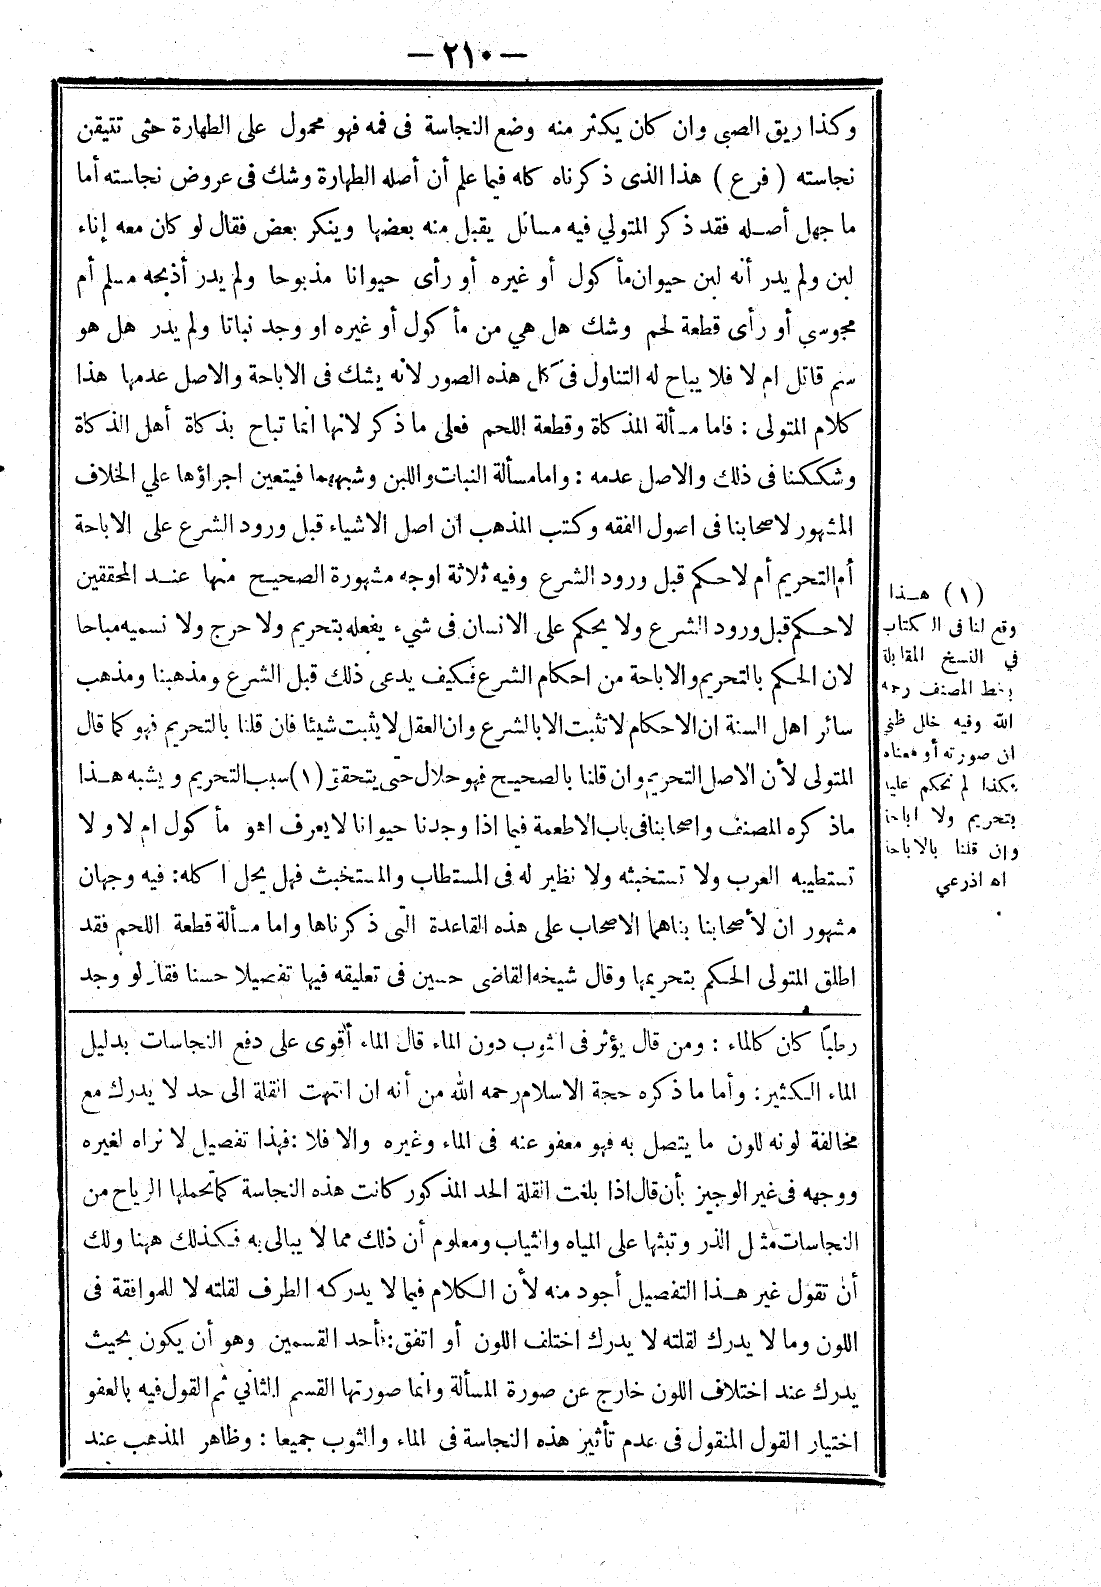 — ٢١٠ —
وكذا ريق الصبي وان كان يكثر منه وضع النجاسة فى فمه فهو محمول على الطهارة حتى تتيقن
نجاسته ( فرع ) هذا الذى ذكرناه كله فيما علم أن أصله الطهارة وشك فى عروض نجاسته أما
ما جهل أصله فقد ذكر المتولي فيه مسائل يقبل منه بعضها وينكر بعض فقال لو كان معه إناء
لبن ولم يدر أنه لبن حيوان مأكول أو غيره أو رأى حيوانا مذبوحا ولم يدر أذبحه مسلم أم
مجوسي أو رأى قطعة لحم وشك هل هي من مأكول أو غيره او وجد نباتا ولم يدر هل هو
سم قاتل ام لا فلا يباح له التناول فى كل هذه الصور لانه يشك فى الاباحة والاصل عدمها هذا
كلام المتولى : فاما مسألة المذكاة وقطعة اللحم فعلى ما ذكر لانها انما تباح بذكاة أهل الذكاة
وشككنا فى ذلك والاصل عدمه : واما مسألة النبات واللبن وشبههما فيتعين اجراؤها علي الخلاف
المشهور لاصحابنا فى اصول الفقه وكتب المذهب ان اصل الاشياء قبل ورود الشرع على الاباحة
أم التحريم أم لا حكم قبل ورود الشرع وفيه ثلاثة اوجه مشهورة الصحيح منها عند المحققين
لا حكم قبل ورود الشرع ولا يحكم على الانسان فى شيء يفعله بتحريم ولا حرج ولا نسميه مباحا
لان الحكم بالتحريم والاباحة من احكام الشرع فكيف يدعى ذلك قبل الشرع ومذهبنا ومذهب
سائر اهل السنة ان الاحكام لا تثبت الا بالشرع وان العقل لا يثبت شيئا فان قلنا بالتحريم فهو كما قال
المتولى لأن الاصل التحريم وان قلنا بالصحيح فهو حلال حتى يتحقق (١) سبب التحريم ويشبه هذا
ماذكره المصنف واصحابنا فى باب الاطعمة فيما اذا وجدنا حيوانا لا يعرف اهو مأكول ام لا ولا
تستطيبه العرب ولا تستخبثه ولا نظير له فى المستطاب والمستخبث فهل يحل اكله : فيه وجهان
مشهوران لأصحابنا بناهما الاصحاب على هذه القاعدة التى ذكرناها واما مسألة قطعة اللحم فقد
اطلق المتولى الحكم بتحريمها وقال شيخه القاضى حسين فى تعليقه فيها تفصيلا حسنا فقال لو وجد
(١) هذا
وقع لنا فى الكتاب
في النسخ المقابلة
بخط المصنف رحمه
الله وفيه خلل ظني
ان صورته أو معناه
هكذا لم نحكم عليه
بتحريم ولا اباحة
وإن قلنا بالاباحة
اه اذرعي
رطبا كان كالماء : ومن قال يؤثر فى الثوب دون الماء قال الماء أقوى على دفع النجاسات بدليل
الماء الكثير : وأما ما ذكره حجة الاسلام رحمه الله من أنه ان انتهت القلة الى حد لا يدرك مع
مخالفة لونه للون ما يتصل به فهو معفو عنه فى الماء وغيره والا فلا : فهذا تفصيل لا نراه لغيره
ووجهه فى غير الوجيز بأن قال اذا بلغت القلة الحد المذكور كانت هذه النجاسة كما تحملها الرياح من
النجاسات مثل الذر وتبثها على المياه والثياب ومعلوم أن ذلك مما لا يبالى به فكذلك ههنا ولك
أن تقول غير هذا التفصيل أجود منه لأن الكلام فيما لا يدركه الطرف لقلته لا للموافقة فى
اللون وما لا يدرك لقلته لا يدرك اختلف اللون أو اتفق : فأحد القسمين وهو أن يكون بحيث
يدرك عند اختلاف اللون خارج عن صورة المسألة وانما صورتها القسم الثاني ثم القول فيه بالعفو
اختيار القول المنقول فى عدم تأثيز هذه النجاسة فى الماء والثوب جميعا : وظاهر المذهب عند